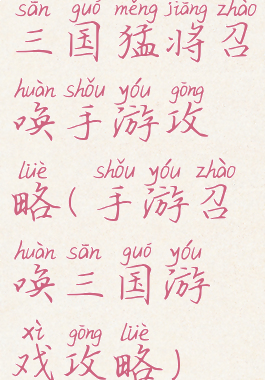 sān guó měng jiāng zhào
三国猛将召
huàn shǒu yóu gōng
唤手游攻
lüè shǒu yóu zhào
略(手游召
huàn sān guó yóu
唤三国游
xì gōng lüè
戏攻略)